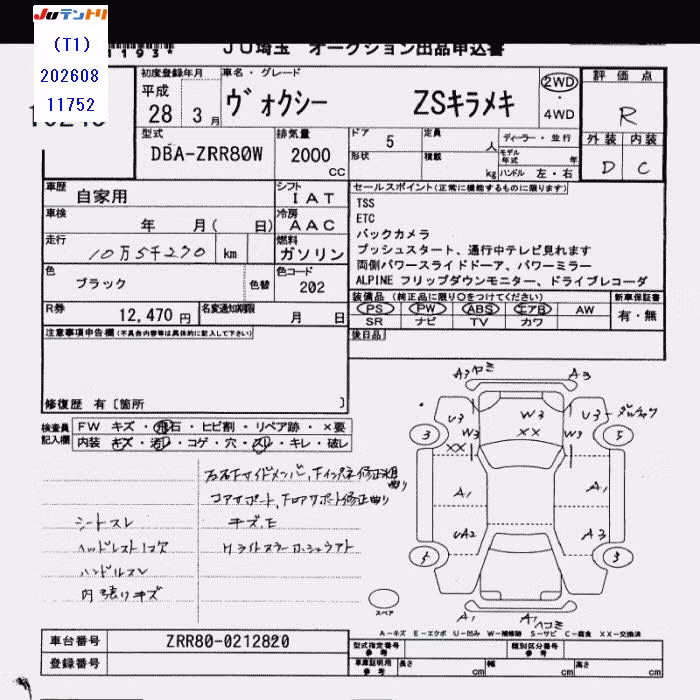 JUテントリ
(T1)
202608
11752
1193*
JU埼玉 オークション出品申込書
初度登録年月
平成
28 3月
車名・グレード
ヴォクシー ZSキラメキ
2WD
・4WD
評価点
R
型式
DBA-ZRR80W
排気量
2000
cc
ドア 5
定員 人
形状
積載 kg
ディーラー・並行
モデル年式 年
ハンドル 左・右
外装 内装
D C
車歴 自家用
シフト IAT
車検 年 月( 日)
冷房 AAC
走行 10万5千270 km
燃料 ガソリン
色 ブラック 色替
色コード 202
R券 12,470円
名変通知期限 月 日
セールスポイント(正常に機能するものに限ります)
TSS
ETC
バックカメラ
プッシュスタート、通行中テレビ見れます
両側パワースライドドーア、パワーミラー
ALPINE フリップダウンモニター、ドライブレコーダ
装備品 (純正品に限り○をつけてください)
PS PW ABS エアB AW
SR ナビ TV カワ
新車保証書
有・無
後日品
注意事項申告欄(不具合内容等は具体的に記入して下さい)
修復歴 有〔箇所 〕
検査員記入欄
FW キズ・飛石・ヒビ割・リペア跡・×要
内装 キズ・汚れ・コゲ・穴・スレ・キレ・破し
コアサポート、
シートスレ
キズ
ハンドルスレ
内張りキズ
A3 ヤミ A3
U3 W3 U3
W3 XX W3
XX
3 5
A1 A1
UA2 A3
5 3
A1 A1 ヘコミ
スペア
A-キズ E-エクボ U-凹み W-補修跡 S-サビ C-腐食 XX-交換済
車台番号 ZRR80-0212820
登録番号
型式指定番号 参考
類別区分番号 参考
車庫証明用 参考
長さ cm 幅 cm 高さ cm